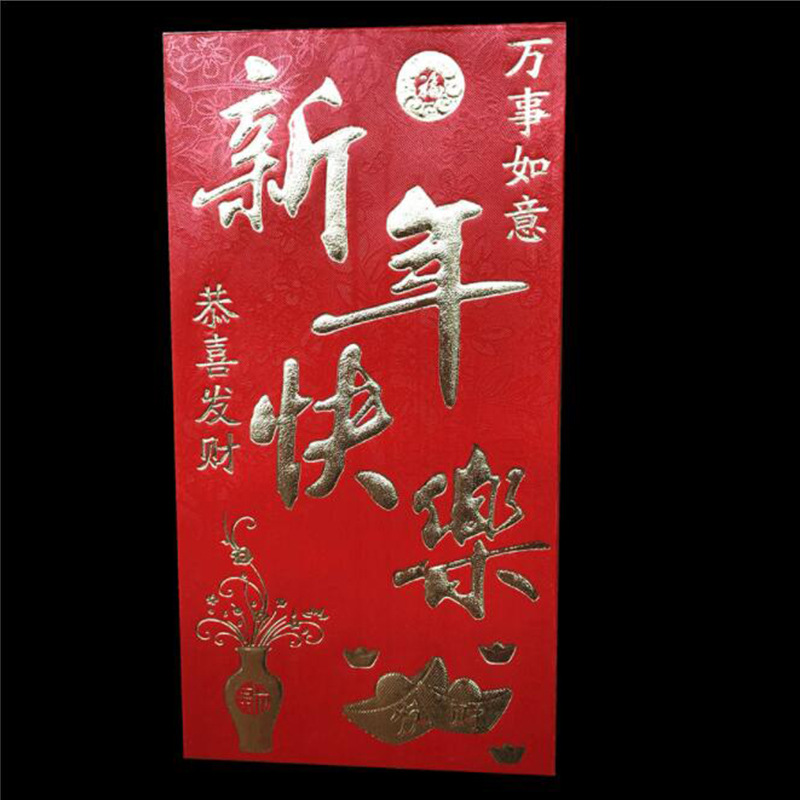 万事如意
福
新年快樂
恭喜发财